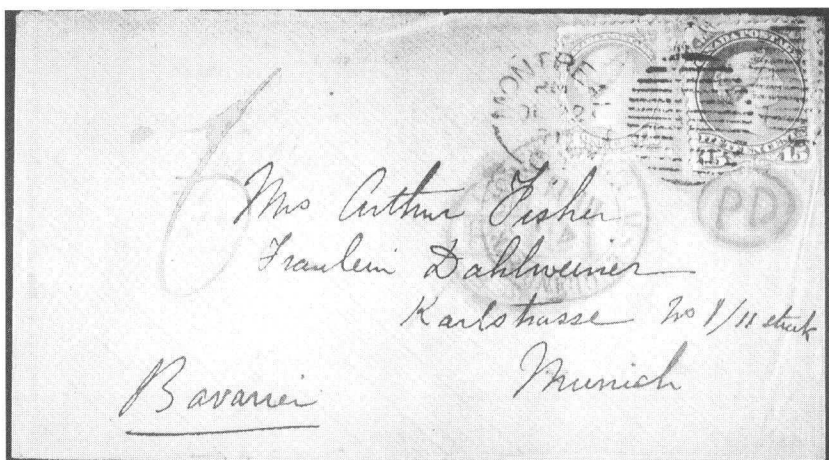 MONTREAL
CANADA POSTAGE
15 15
PD
Mrs Arthur Fisher
Fraulein Dahlweiner
Karlstrasse No 1/11 stock
Munich
Bavaria